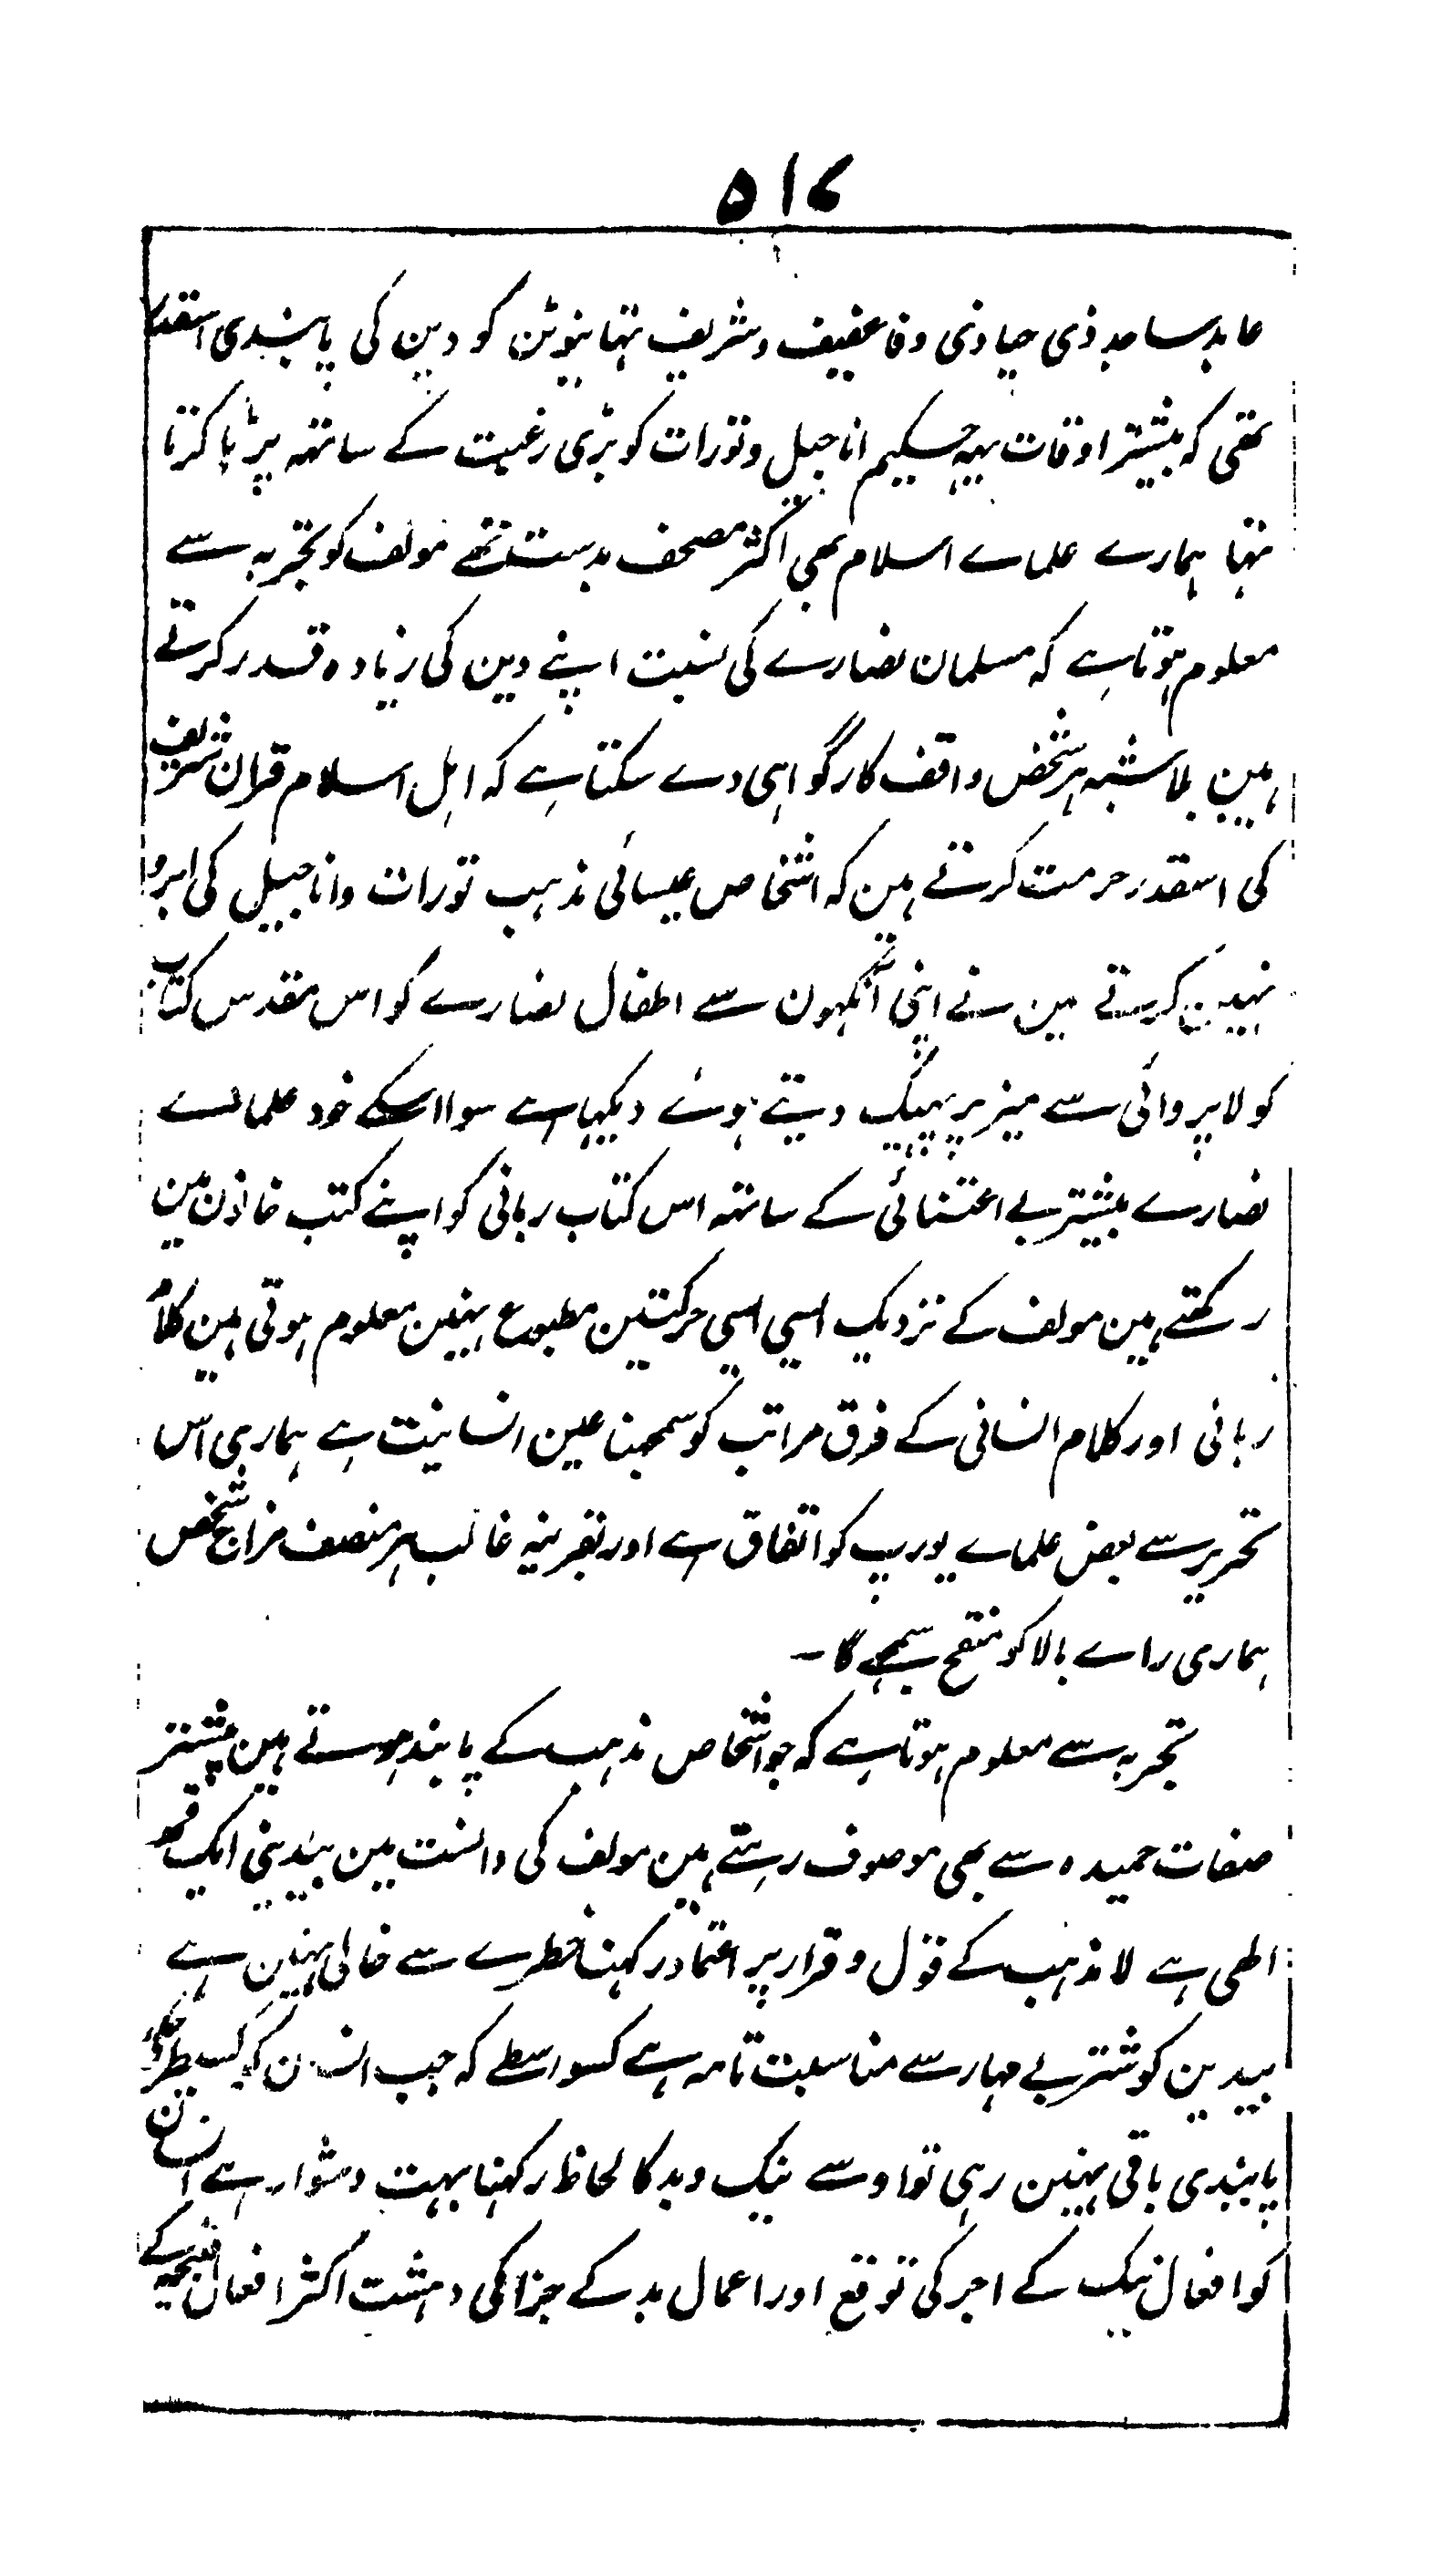 ۵۱۷
عابد ساجد ذی حیا وذی وفا عفیف و شریف تہا نیوٹن کو دین کی پابندی اسقدر
تھی کہ بیشتر اوقات یہہ حکیم اناجیل و تورات کو بڑی رغبت کے ساتہہ پڑہا کرتا
تہا ہمارے علماے اسلام بھی اکثر مصحف بدست تھے مولف کو تجربہ سے
معلوم ہوتا ہے کہ مسلمان نصارے کی نسبت اپنے دین کی زیادہ قدر کرتے
ہین بلا شبہ ہر شخص واقف کار گواہی دے سکتا ہے کہ اہل اسلام قران شریف
کی اسقدر حرمت کرتے ہین کہ اشخاص عیسائی مذہب تورات و اناجیل کی ابرو
نہین کرتے مین نے اپنی آنکہون سے اطفال نصارے کو اس مقدس کتاب
کو لاپروائی سے میز پر پہینک دیتے ہوئے دیکہا ہے سوا اسکے خود علمائے
نصارے بیشتر بے اعتنائی کے ساتہہ اس کتاب ربانی کو اپنے کتب خانون مین
رکھتے ہین مولف کے نزدیک ایسی ایسی حرکتین مطبوع نہین معلوم ہوتی ہین کلام
ربانی اور کلام انسانی کے فرق مراتب کو سمجہنا عین انسانیت ہے ہماری اس
تحریر سے بعض علماے یورپ کو اتفاق ہے اور بقرینہ غالب ہر منصف مزاج شخص
ہماری راے بالا کو منقح سمجہے گا ۔
تجربہ سے معلوم ہوتا ہے کہ جو اشخاص مذہب کے پابند ہوتے ہین بیشتر
صفات حمیدہ سے بھی موصوف رہتے ہین مولف کی دانست مین بیدینی ایک قہر
الٰہی ہے لا مذہب کے قول و قرار پر اعتماد رکہنا خطرے سے خالی نہین ہے
بیدین کو شتر بے مہار سے مناسبت تامہ ہے کسواسطے کہ جب انسان کو کسیطرح کی
پابندی باقی نہین رہی تو اوسے نیک و بد کا لحاظ رکہنا بہت دشوار ہے انسان
کو افعال نیک کے اجر کی توقع اور اعمال بد کے جزا کی دہشت اکثر افعال قبیحہ کے